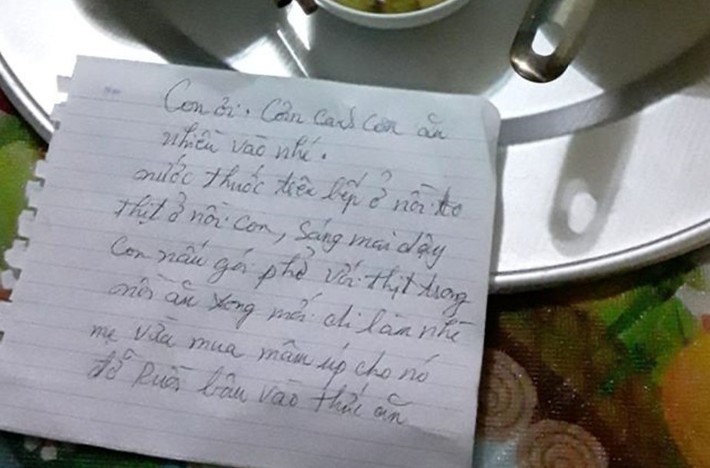 Con ơi. Còn canh con ăn
nhiều vào nhé.
nước thuốc trên bếp ở nồi to
thịt ở nồi con, sáng mai dậy
con nấu gói phở với thịt trong
nồi ăn xong mới đi làm nhé
mẹ vừa mua mâm úp cho nó
đỡ Ruồi bâu vào thức ăn